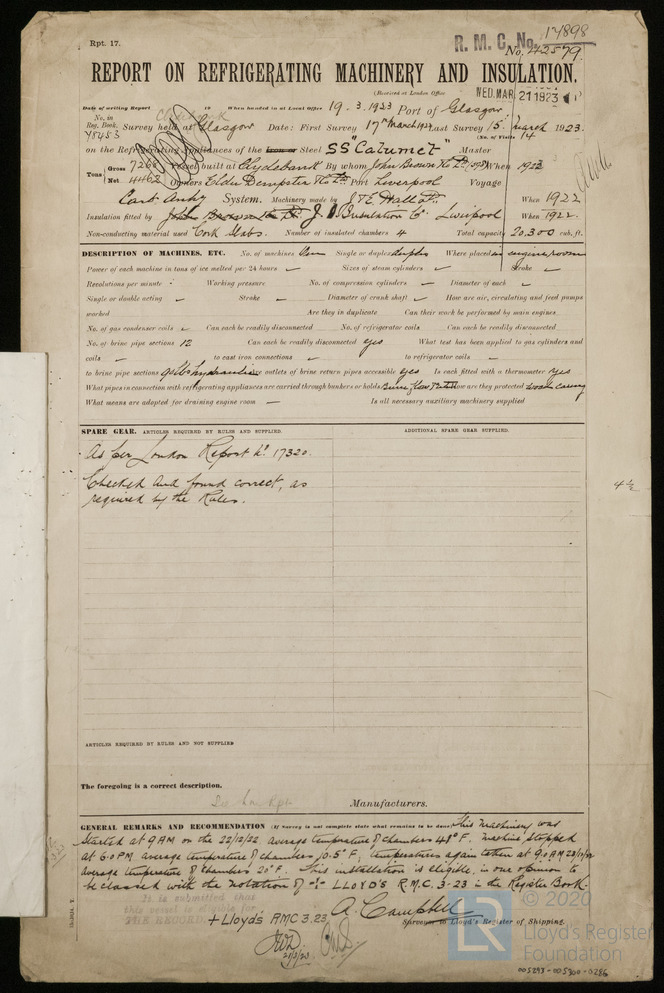 Rpt. 17.
R. M. C. No. 17898
No. 42579
REPORT ON REFRIGERATING MACHINERY AND INSULATION.
(Received at London Office WED. MAR. 21 1923)
Date of writing Report 19 When handed in at Local Office 19.3.1923 Port of Glasgow
No. in Reg. Book. Survey held at Glasgow Date: First Survey 17th March 1922 Last Survey 15 March 1923.
78483 (No. of Visits 14
on the Refrigerating Appliances of the Iron or Steel SS "Calumet" Master
Tons Gross 7268 Vessel built at Clydebank By whom John Brown & Co Ld When 1922
Net 4462 Owners Elder Dempster & Co Ld Port Liverpool Voyage
Carb. Anhy System. Machinery made by J & E Hall Ld When 1922
Insulation fitted by John Brown & Co Ld Insulation Co Liverpool When 1922
Non-conducting material used Cork Slabs. Number of insulated chambers 4 Total capacity 20,300 cub. ft.
DESCRIPTION OF MACHINES, ETC. No. of machines One Single or duplex duplex Where placed in engine room
Power of each machine in tons of ice melted per 24 hours Sizes of steam cylinders Stroke
Revolutions per minute Working pressure No. of compression cylinders Diameter of each
Single or double acting Stroke Diameter of crank shaft How are air, circulating and feed pumps
worked Are they in duplicate Can their work be performed by main engines
No. of gas condenser coils Can each be readily disconnected No. of refrigerator coils Can each be readily disconnected
No. of brine pipe sections 12 Can each be readily disconnected yes What test has been applied to gas cylinders and
coils to cast iron connections to refrigerator coils
to brine pipe sections 90 lbs hydraulic Are outlets of brine return pipes accessible yes Is each fitted with a thermometer yes
What pipes in connection with refrigerating appliances are carried through bunkers or holds Brine flow & return How are they protected wood casing
What means are adopted for draining engine room Is all necessary auxiliary machinery supplied
SPARE GEAR. ARTICLES REQUIRED BY RULES AND SUPPLIED. ADDITIONAL SPARE GEAR SUPPLIED.
As per London Report No. 17320.
Checked and found correct, as
required by the Rules.
4½
ARTICLES REQUIRED BY RULES AND NOT SUPPLIED
The foregoing is a correct description.
See Lon. Rpt. Manufacturers.
GENERAL REMARKS AND RECOMMENDATION (If Survey is not complete state what remains to be done) This machinery was
started at 9 AM on the 22/12/22, average temperature of chambers 48° F. machine stopped
at 6.0 PM average temperature of chambers 10.5° F; temperatures again taken at 9.0 AM 23/12/22
average temperature of chambers 20° F. This installation is eligible, in our opinion to
be classed with the notation of + LLOYD'S R.M.C. 3-23 in the Register Book.
It is submitted that
this vessel is eligible for
THE RECORD + Lloyd's RMC 3.23
A. Campbell
Surveyor to Lloyd's Register of Shipping.
21/3/23
© 2020
LR Lloyd's Register
Foundation
005293-005300-0286